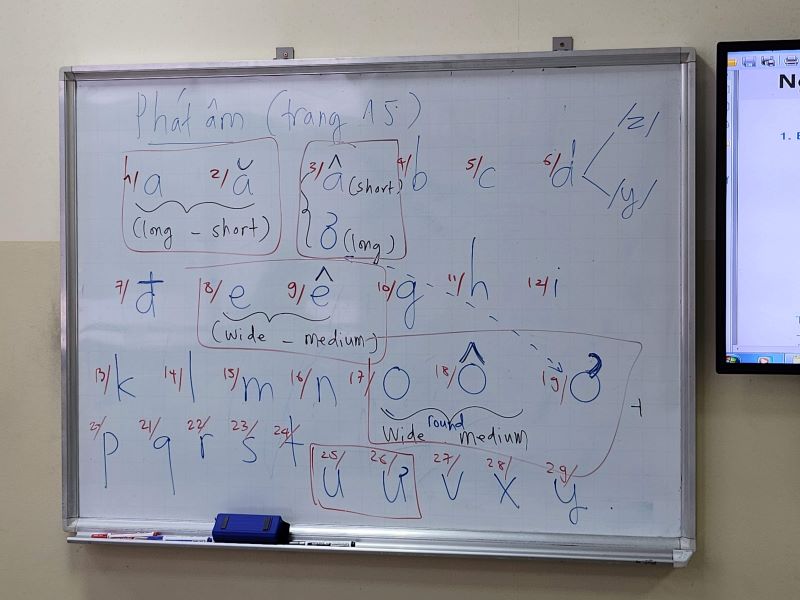 Phát âm (trang 15)
1/ a 2/ ă 3/ â (short) 4/ b 5/ c 6/ d /z/
(long - short) ơ (long) /y/
7/ đ 8/ e 9/ ê 10/ g 11/ h 12/ i
(wide - medium)
13/ k 14/ l 15/ m 16/ n 17/ o 18/ ô 19/ ơ
round
wide medium
20/ p 21/ q 22/ r 23/ s 24/ t
25/ u 26/ ư 27/ v 28/ x 29/ y
N
1.